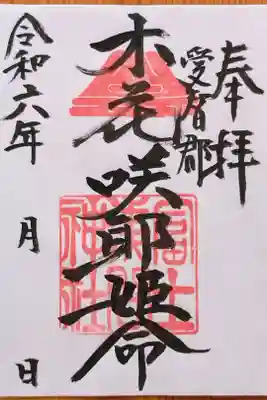 奉拝
木花咲耶姫命
富士
神社
令和六年
月
日